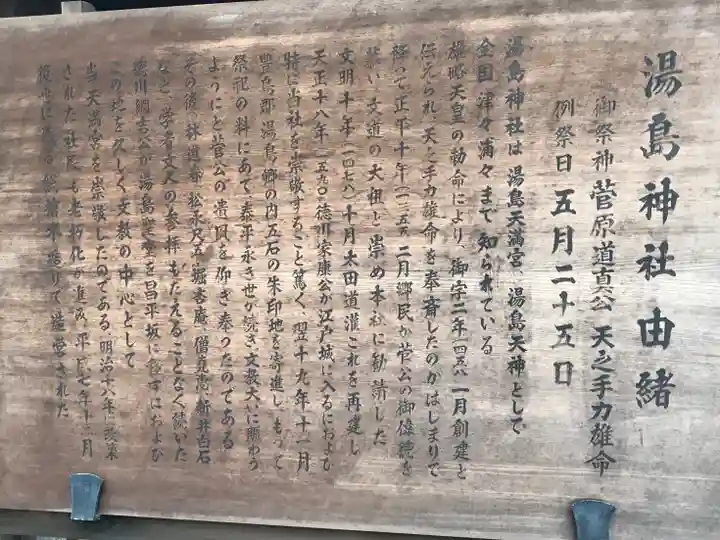 湯島神社由緒
御祭神 菅原道真公 天之手力雄命
例祭日 五月二十五日
湯島神社は湯島天満宮、湯島天神として
全国津々浦々まで知られている
雄略天皇の勅命により、御宇二年(四五八)一月創建と
伝えられ、天之手力雄命を奉斎したのがはじまりで
降って正平十年(一三五五)二月郷民が菅公の御偉徳を
慕い、文道の大祖と崇め本社に勧請した
文明十年(一四七八)十月太田道灌これを再建し
天正十八年(一五九〇)徳川家康公が江戸城に入るにおよび
特に当社を崇敬すること篤く、翌十九年十一月
豊島郡湯島郷の内五石の朱印地を寄進し、もって
祭祀の料にあて、泰平永き世が続き、文教大いに賑わう
ようにと菅公の遺風を仰ぎ奉ったのである
その後、林道春、松永尺五、堀杏庵、僧堯恵、新井白石
など、学者文人の参拝もたえることなく続いた
徳川綱吉公が湯島聖堂を昌平坂に移すにおよび
この地を久しく文教の中心として
当天満宮を崇敬したのである、明治十八年に改築
された社殿も老朽化が進み、平成七年十二月
造営された